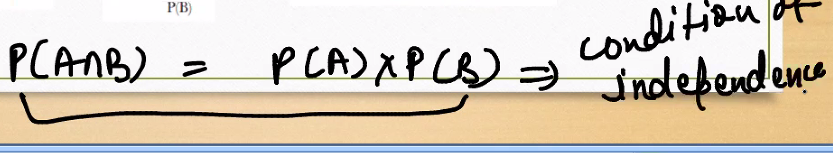 P(B)
P(A∩B) = P(A) x P(B) ⇒ condition of
independence